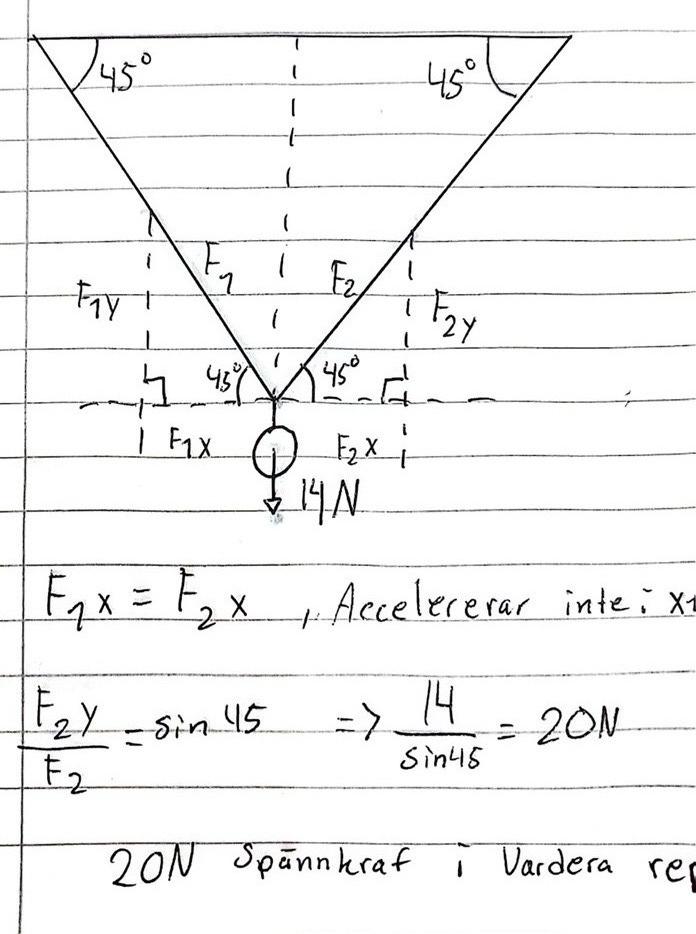 45° 45°
F1 F2
F1y F2y
45° 45°
F1x F2x
14N
F1x = F2x , Accelererar inte i x1
F2y / F2 = sin 45 => 14 / sin45 = 20N
20N Spännkraf i Vardera rep